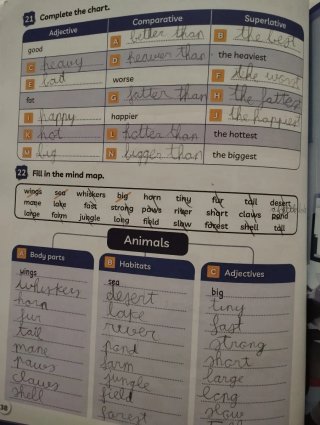 21 Complete the chart.
Adjective Comparative Superlative
good A better than B the best
C heavy D heaver than the heaviest
E bad worse F the worst
fat G fatter than H the fattest
I happy happier J the happiest
K hot L hotter than the hottest
M big N bigger than the biggest
22 Fill in the mind map.
wings sea whiskers big horn tiny fur tail desert
mane lake fast strong paws river short claws pond
large farm jungle long field slow forest shell tall
Animals
A Body parts
wings
whiskers
horn
fur
tail
mane
paws
claws
shell
B Habitats
sea
desert
lake
river
pond
farm
jungle
field
forest
C Adjectives
big
tiny
fast
strong
short
large
long
slow
38